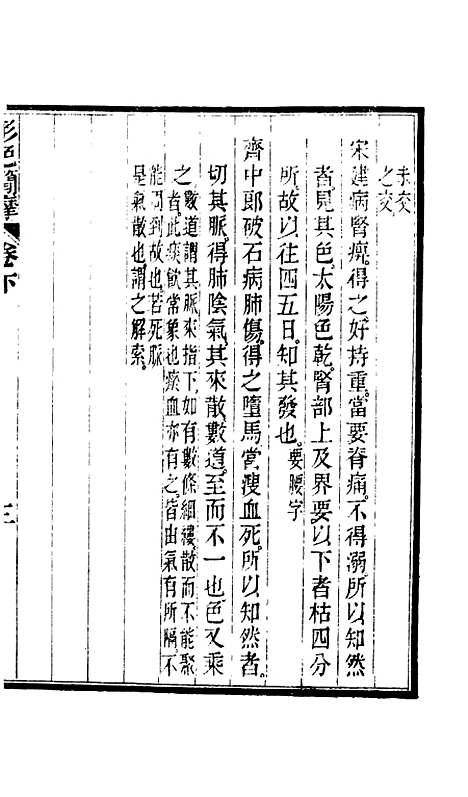 未交
之交
宋建病腎痹。得之好持重。當要脊痛。不得溺。所以知然
者。見其色。太陽色乾。腎部上及界要以下者枯四分
所。故以往四五日。知其發也。要腰字
齊中郎破石病肺傷。得之墮馬。當溲血死。所以知然者。
切其脈。得肺陰氣。其來散。數道。至而不一也。色又乘
之。數道。謂其脈來指下如有數條細縷。散而不能聚
者。此痰飲常象也。瘀血亦有之。皆由氣有所隔。不
能同到故也。若死脈
是氣散也。謂之解索。
形色簡摩
卷下
三